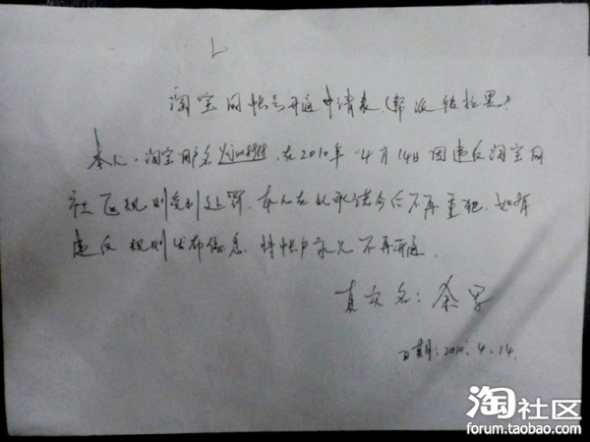 淘宝网帐号开通申请表(帮派被拉黑)
本人,淘宝用户名 在2010年4月14日因违反淘宝网
社区规则受到处罚,本人在此承诺今后不再重犯,如有
违反规则发布信息,将帐户永久不再开通。
真实名:余军
日期:2010.4.14
淘社区
forum.taobao.com